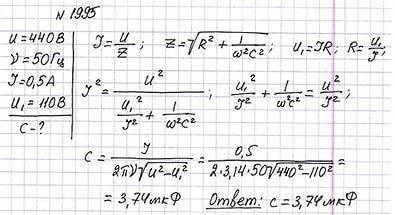 N 1995
U = 440В
ν = 50Гц
I = 0,5А
U₁ = 110В
C - ?
I = U/Z ; Z = √(R² + 1/(ω²C²)) ; U₁ = IR ; R = U₁/I ;
I² = U²/(U₁²/I² + 1/(ω²C²)) ; U₁²/I² + 1/(ω²C²) = U²/I² ;
C = I/(2πν√(U² - U₁²)) = 0,5/(2·3,14·50√(440² - 110²)) =
= 3,74мкФ Ответ: C = 3,74мкФ